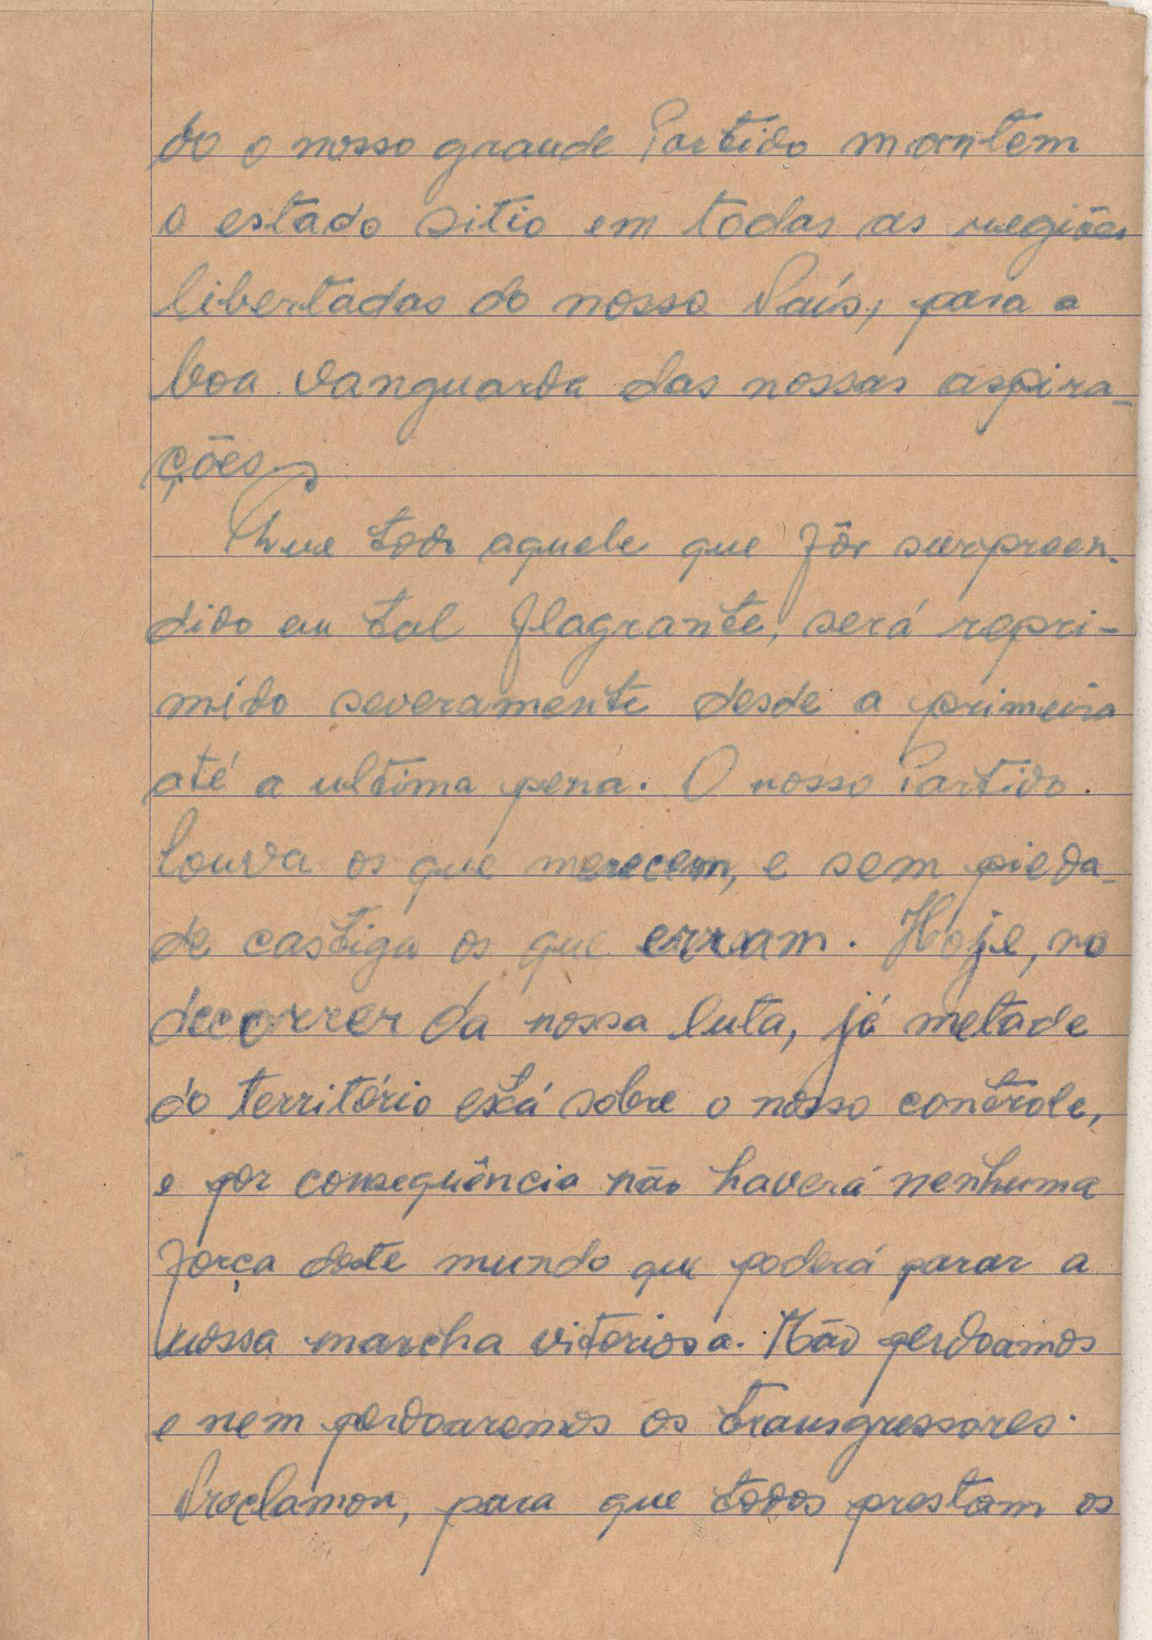 do o nosso grande Partido mantem
o estado sitio em todas as regiões
libertadas do nosso País, para a
boa vanguarda das nossas aspira-
ções.
Que todo aquele que fôr surpreen-
dido em tal flagrante, será repri-
mido severamente desde a primeira
até a ultima pena. O nosso Partido
louva os que merecem, e sem pieda-
de castiga os que erram. Hoje, no
decorrer da nossa luta, já metade
do território está sobre o nosso contrôle,
e por conseqüência não haverá nenhuma
força deste mundo que poderá parar a
nossa marcha vitoriosa. Não perdoamos
e nem perdoaremos os transgressores.
Proclamou, para que todos prestam os